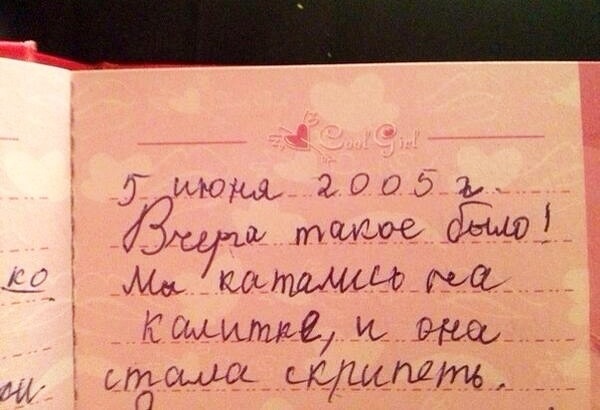 Cool Girl
5 июня 2005 г.
Вчера такое было!
ко
Мы катались на
калитке, и она
стала скрипеть.